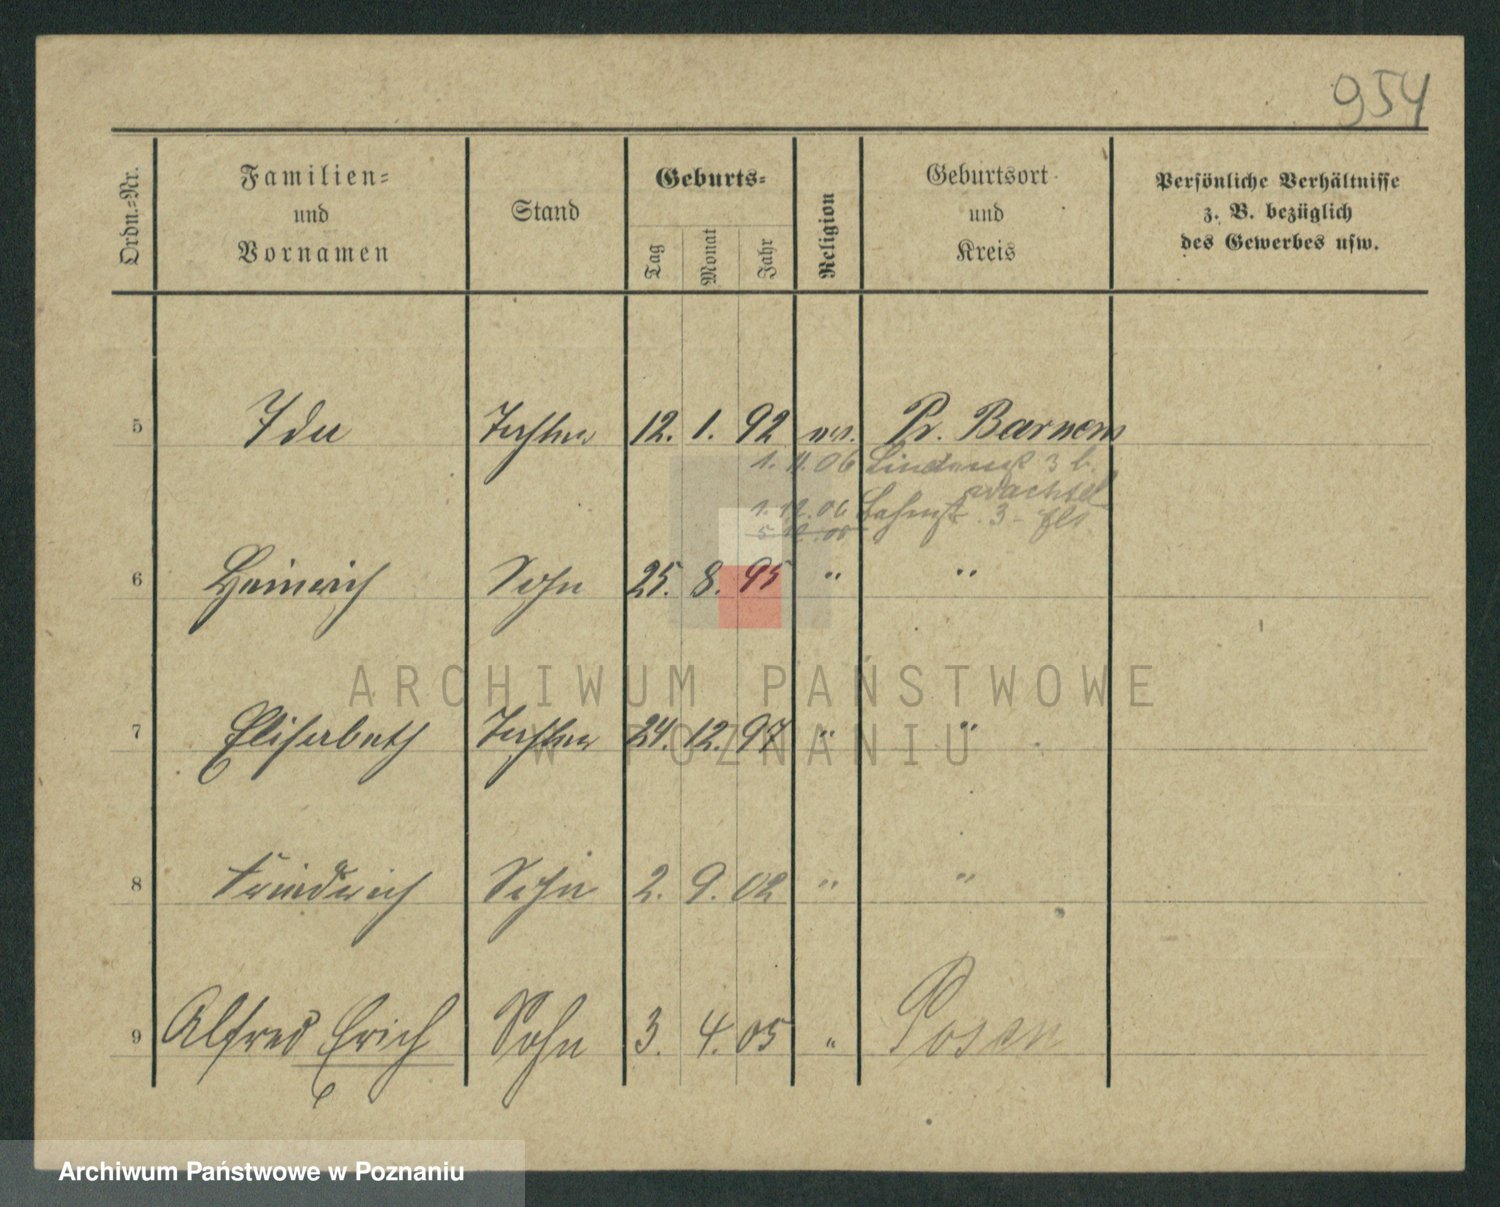 954
Ordn.-Nr.
Familien-
und
Vornamen
Stand
Geburts-
Tag
Monat
Jahr
Religion
Geburtsort
und
Kreis
Persönliche Verhältnisse
z. B. bezüglich
des Gewerbes usw.
5 Ida Tochter 12. 1. 92 ev. Pr. Barnem
1. 11. 06 3 b.
Wachtel
1. 12. 06 3
6 Heinrich Sohn 25. 8. 95 " "
ARCHIWUM PAŃSTWOWE
7 Elisabeth Tochter 24. 12. 97 " "
W POZNANIU
8 Friedrich Sohn 2. 9. 02 " "
9 Alfred Erich Sohn 3. 4. 05 " Posen
Archiwum Państwowe w Poznaniu